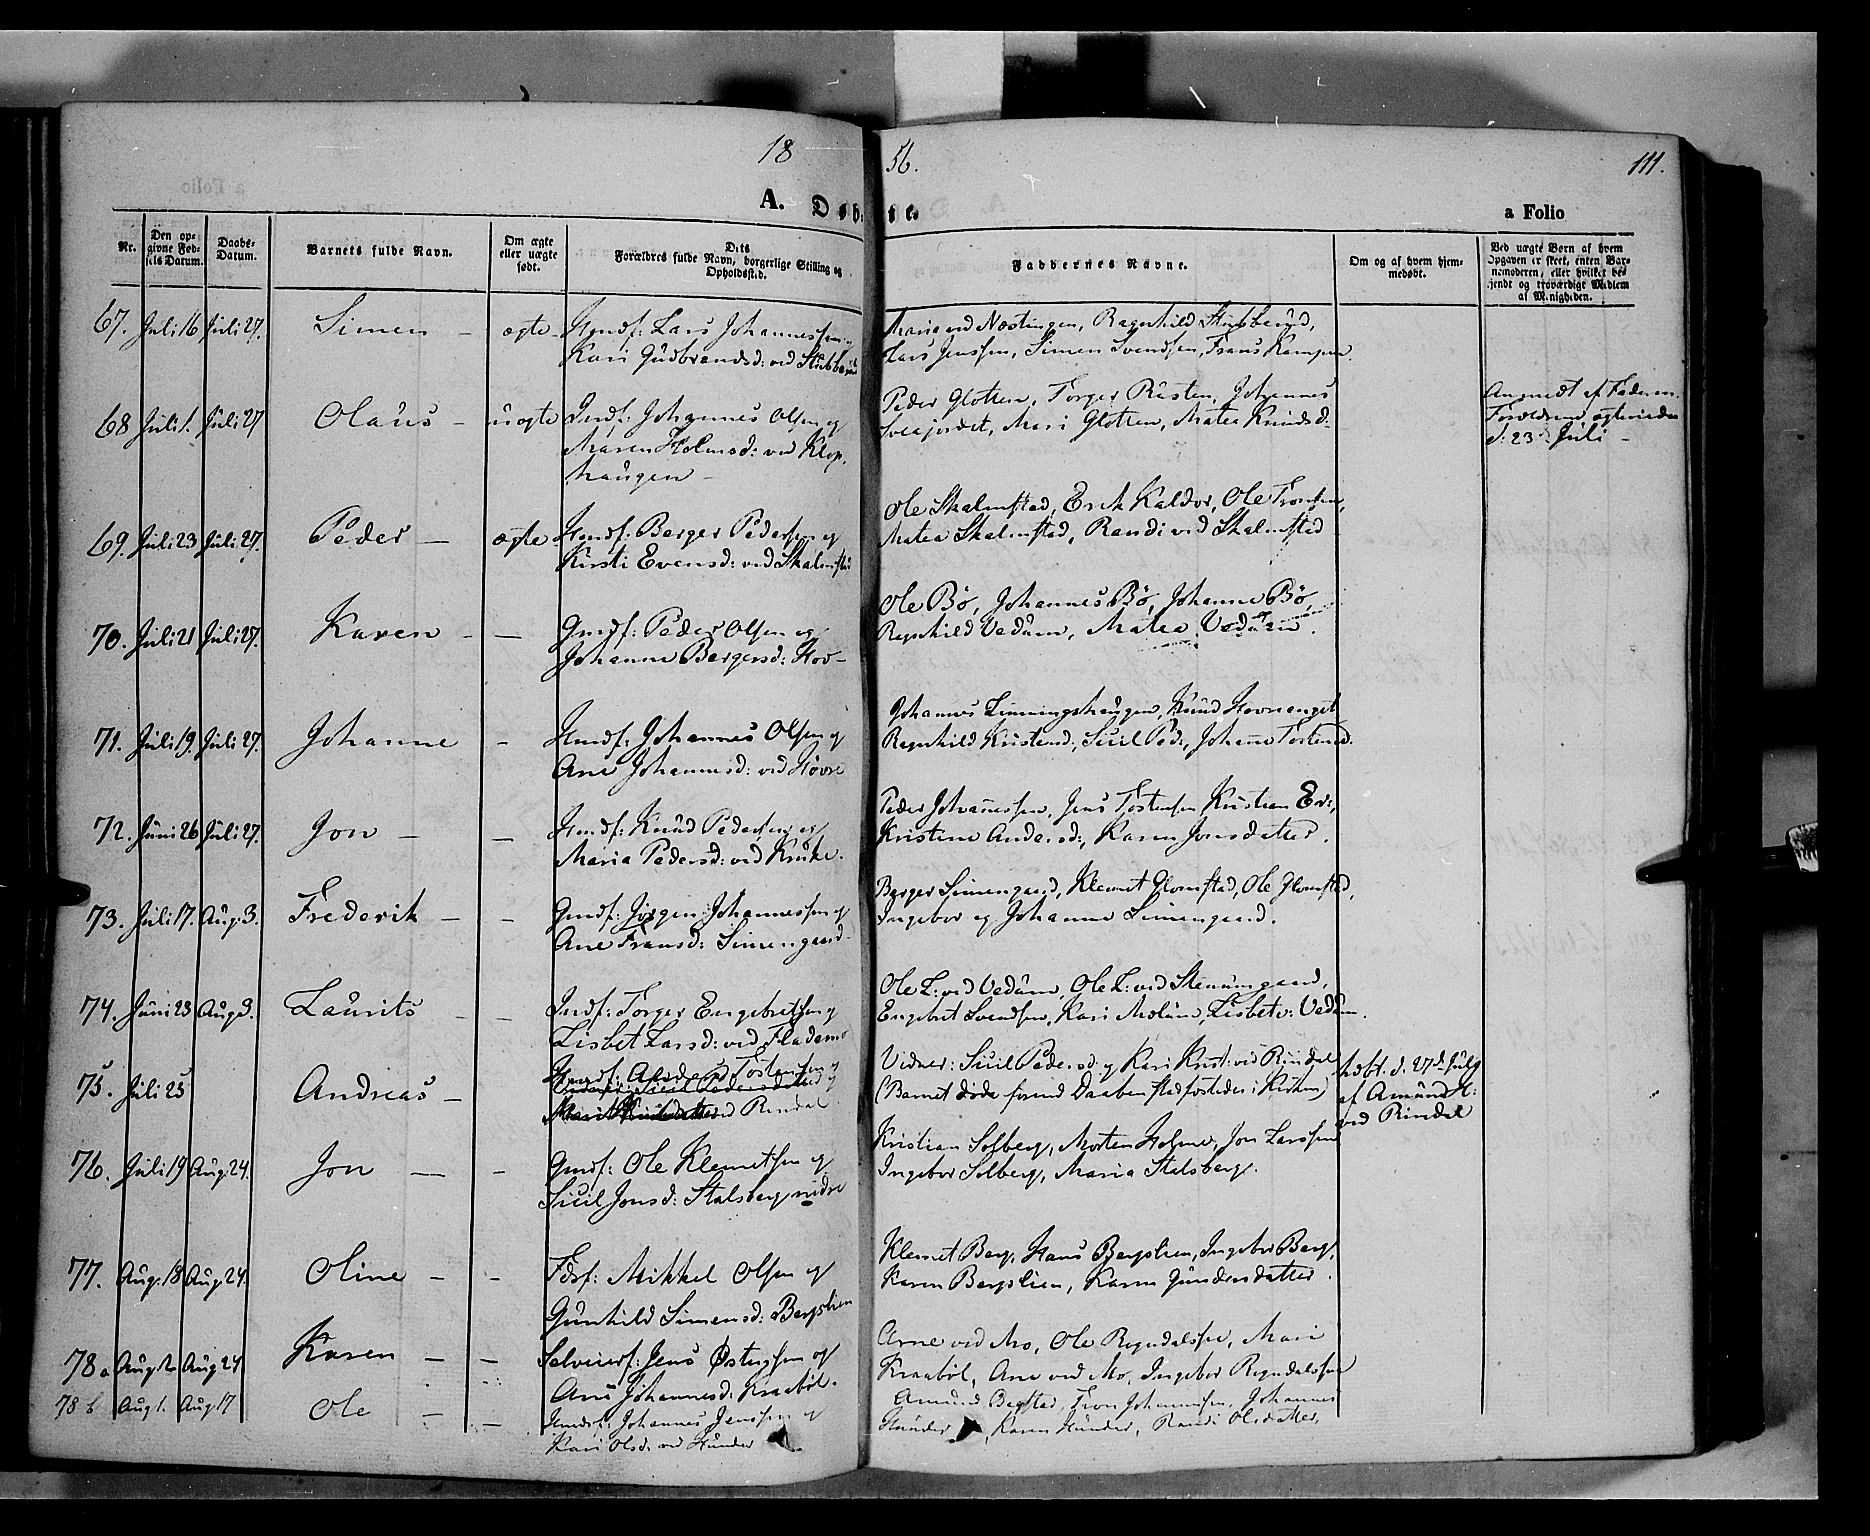 18
56.
111.
A. Døbte.
a Folio
Nr.
Den opgivne Fødsels Datum.
Daabs-Datum.
Barnets fulde Navn.
Om ægte eller uægte født.
Dets Forældres fulde Navn, borgerlige Stilling og Opholdssted.
Faddernes Navne.
Om og af hvem hjemmedøbt.
Ved uægte Børn af hvem Opgaven er skeet, enten Barnemoderen, eller hvilket betjendt og troværdigt Medlem af Menigheden.
67. Juli 16 Juli 27. Simen - ægte - Hmdf: Lars Johannessen og
Kari Gudbrandsd: ved Stubberud
Maria ved Næstingen, Ragnhild Stubberud,
Lars Jenssen, Simen Svendsen, Frans Kampen.
68 Juli 1. Juli 27 Olaus - uægte Indf: Johannes Olsen og
Maren Holmsd: ved Klop-
haugen -
Peder Glotten, Torger Rusten, Johannes
Sveajordet, Mari Glotten, Matea Knudsd:
Anmeldt af Faderen.
Forældrene ægteviede
d: 23d Juli -
69. Juli 23 Juli 27. Peder - ægte Hmdf: Berger Pedersen og
Kirsti Evensd: ved Skalmstad
Ole Skalmstad, Erik Kaldor, Ole Tronsen,
Matea Skalmstad, Randi ved Skalmstad
70. Juli 21 Juli 27. Karen - - Gmdf: Peder Olsen og
Johanne Bergersd: Hov -
Ole Bø, Johannes Bø, Johanne Bø,
Ragnhild Vedum, Matea Vedum.
71. Juli 19. Juli 27. Johanne - Hmdf: Johannes Olsen og
Ane Johannesd: ved Høvre
Johannes Linningshaugen, Knud Hovsenget
Ragnhild Kristensd:, Sicil Ped:, Johane Tostensd.
72. Juni 26 Juli 27. Jon - - Hmdf: Knud Pedersen og
Maria Pedersd: ved Kruke.
Peder Johannessen, Jens Tostensen, Kristian Ev:,
Kristine Andersd:, Karen Jonsdatter.
73. Juli 17. Aug 3. Frederik - - Gmdf: Jørgen Johannessen og
Ane Fransd: Simengaard
Berger Simengaard, Klemet Glomstad, Ole Glomstad,
Ingebor og Johanne Simengaard.
74. Juni 23 Aug 3. Laurits - - Indf: Torger Engebretsen og
Lisbet Larsd: ved Flademo
Ole L: ved Vedum, Ole L: ved Stenumgaard,
Engebret Svendsen, Kari Molum, Lisbet v: Vedum.
75. Juli 25 Andreas - Hmdf: Anders Tostensen og
ved Rindal
Vidner: Sicil Pedersd: og Kari Krist: ved Rindal
(Barnet døde forend Daabens Stadfæstelse i Kirken)
hdbt. d. 27d Juli
af Amund H:
ved Rindal
76. Juli 19 Aug. 24. Jon - - Gmdf: Ole Klemetsen og
Sicil Jonsd: Stalsberg nedre
Kristian Solberg, Morten Holme, Jon Larssen
Ingebor Solberg, Maria Stalsberg.
77. Aug. 18 Aug 24. Oline - - Fdsf: Mikkel Olsen og
Gunhild Simensd: Bergslien
Klemet Berg, Hans Bergslien, Ingebor Berg,
Karen Bergslien, Karen Gundersdatter.
78 a Aug. 2 Aug 24 Karen - - Selveierf: Jens Østensen og
Ane Johannesd: Kraabøl.
Arne ved Mo, Ole Rogndalssen, Mari
Kraabøl, Ane ved Mo, Ingebor Rogndalssen
78 b Aug 1. Aug 17 Ole - - Hmdf: Johannes Jenssen og
Kari Olsd: ved Hunder
Amund Bøgstad, Tron Johannessen, Johannes
Hunder, Karen Hunder, Randi Olsdatter,